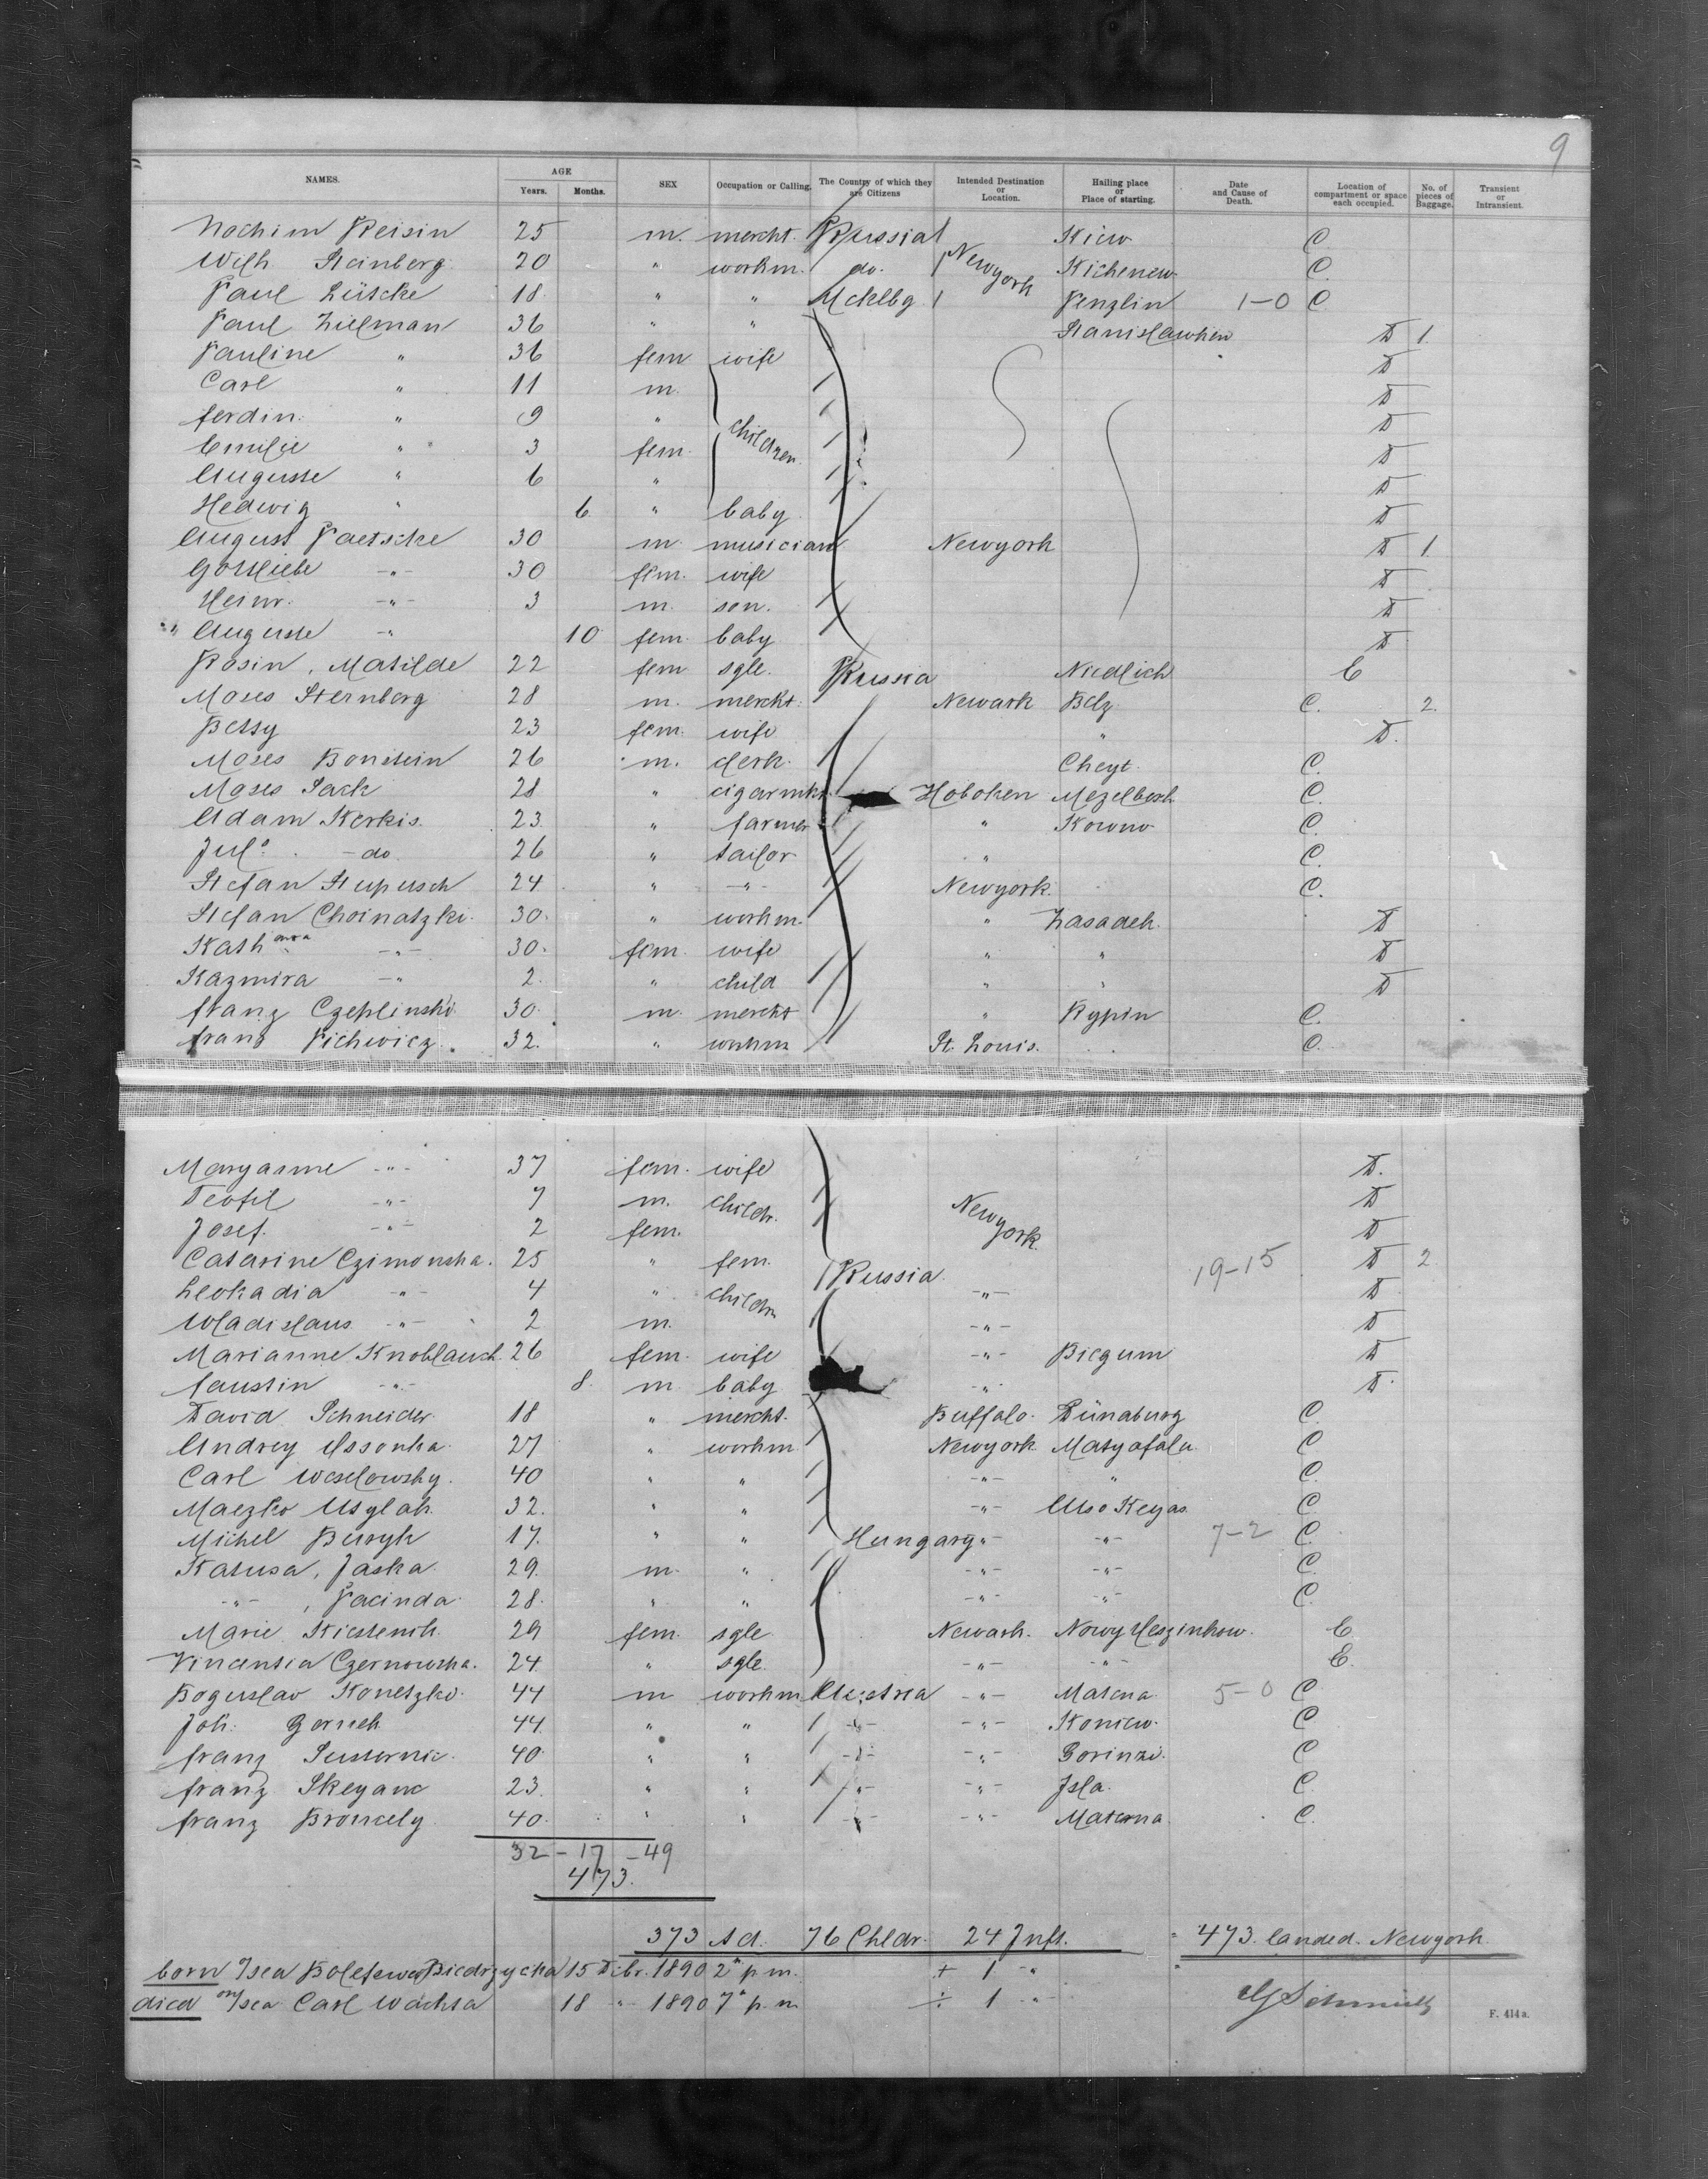 9
NAMES. AGE Years. Months. SEX Occupation or Calling. The Country of which they are Citizens Intended Destination or Location. Hailing place or Place of starting. Date and Cause of Death. Location of compartment or space each occupied. No. of pieces of Baggage. Transient or Intransient.
Nochim Reisin 25 m. mercht. Russia Newyork Kiew C
Wilh Steinberg 20 " workm. do. Kichenew C.
Paul Lütcke 18 " " Mcklbg Penzlin 1-0 C
Paul Zielman 36 " " Stanislawken D 1.
Pauline " 36 fem wife D
Carl " 11 m. children D
Ferdin. " 9 " D
Emilie " 3 fem. D
Auguste " 6 " D
Hedwig " 6 " baby D
August Paetscke 30 m musician Newyork D 1
Gottliebe -"- 30 fem. wife D
Heinr. -"- 3 m. son. D
Auguste -"- 10 fem. baby D
Rosin, Matilde 22 fem sgle. Russia Niedlich E
Moses Sternberg 28 m. mercht. Newark Belz C. 2.
Betsy 23 fem. wife " D.
Moses Bonstein 26 m. clerk. Cheyt. C.
Moses Sack 28 " cigarmkr. Hoboken C.
Adam Kerkis. 23. " farmer " Kowno C.
Jul. -do 26 " tailor " C.
Stefan Stupusch 24 " -"- Newyork. C.
Stefan Choinatzki. 30. " workm. " Zasadek. D
Kath -"- 30. fem. wife " " D
Kazmira -"- 2. " child " " D
Franz Czeplinski 30. m. mercht " Rypin C.
Franz Pichwicz. 32. " workm St. Louis. C.
Maryanne -"- 37 fem. wife D.
Teofil -"- 7 m. childr. Newyork. D
Josef. -"- 2 fem. D
Catarine Czimonska. 25 " fem. Russia. 19-15 D 2
Leokadia -"- 4 " childn -"- D
Wladislaus -"- 2 m. -"- D
Marianne Knoblauch. 26 fem. wife -"- Biegum D
Faustin -"- 8. m baby -"- D.
David Schneider. 18 " mercht. Buffalo. Dünaburg C.
Andrey 27 " workm Newyork. Matyafalu C
Carl Weslowsky. 40 " " -"- " C.
Maezko 32. " " -"- C
Michel 17. " " Hungary -"- -"- 7-2 C.
Katusa, Jaska. 29. m. " -"- -"- C.
-"- , Pacinda. 28. " " -"- -"- C.
Marie 29 fem. sgle Newark. Nowy E
Vincentia Czernowska. 24 " sgle. -"- -"- E.
Boguslav Konetzko. 44 m workm Austria -"- Matena 5-0 C
Joh. 44. " " -"- -"- Koniew. C
Franz 40. " " -"- -"- Gorinzi. C
Franz Skeyanc 23. " " -"- -"- Isla. C.
Franz Broncely 40. " " -"- -"- Materna C.
32 - 17 - 49
473.
373 Ad. 76 Chldr. 24 Inft. = 473. landed. Newyork
born o/sea Biedrzycka 15 Dcbr. 1890 2" p m. + 1 "
died on/sea Carl Wachta 18 " 1890 7" p. m ÷ 1 "
F. 414 a.